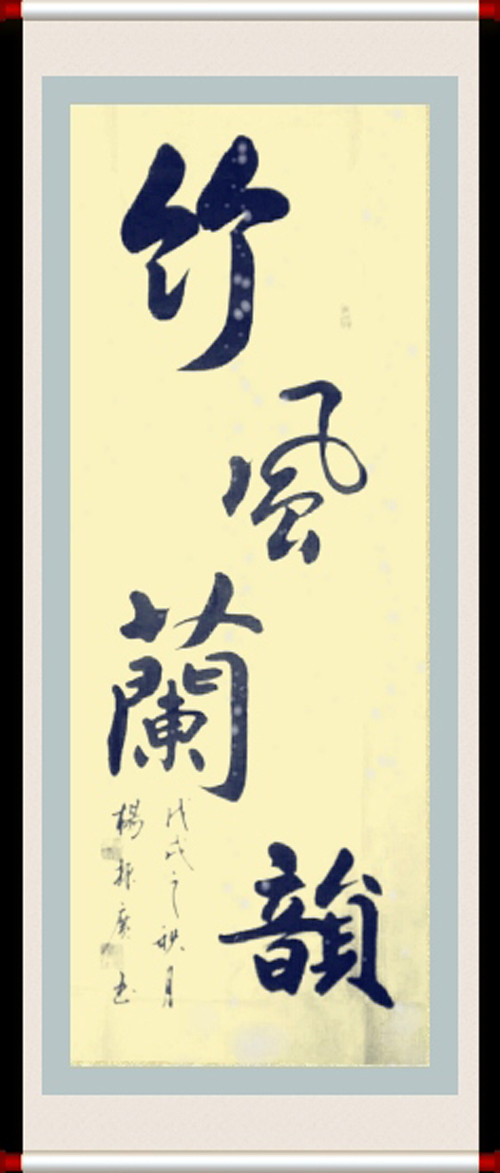 竹風蘭韻
戊戌之秋月
楊振廣書